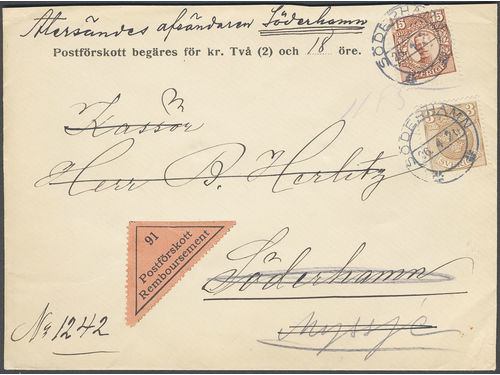 Återsändes afsändaren Söderhamn
Postförskott begäres för kr. Två (2) och 18 öre.
15
SÖDERHAMN
26.4.21
3
SÖDERHAMN
Kassör
Herr B. Herlitz
91
Postförskott
Remboursement
Söderhamn
No 1242